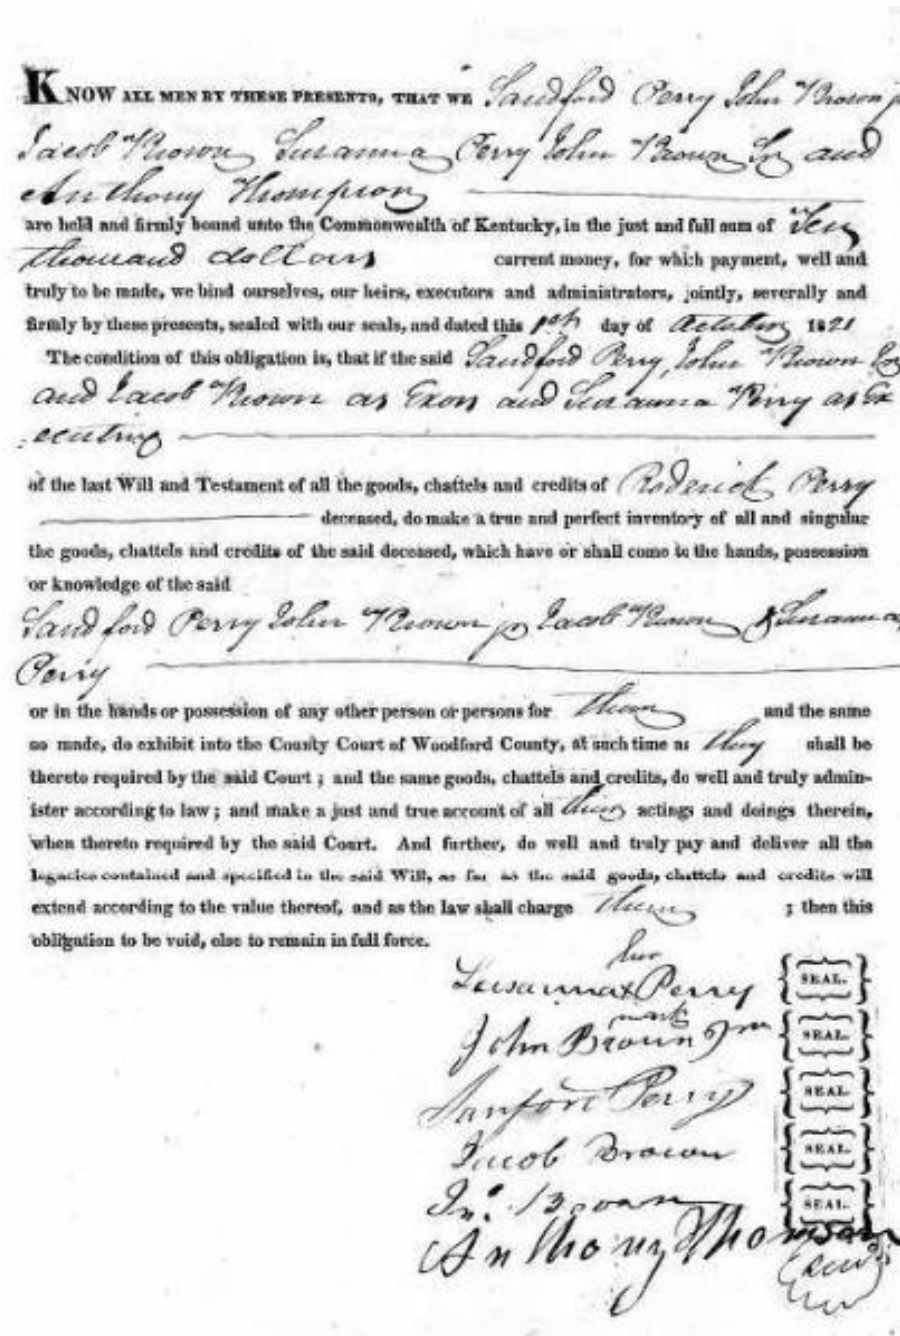 KNOW ALL MEN BY THESE PRESENTS, THAT WE Sandford Perry John Brown jr
Jacob Brown Susanna Perry John Brown Sr and
Anthony Thompson
are held and firmly bound unto the Commonwealth of Kentucky, in the just and full sum of Ten
thousand dollars current money, for which payment, well and
truly to be made, we bind ourselves, our heirs, executors and administrators, jointly, severally and
firmly by these presents, sealed with our seals, and dated this 1st day of October 1821
The condition of this obligation is, that if the said Sandford Perry, John Brown
and Jacob Brown as Exors and Susanna Perry as Ex
ecutrix
of the last Will and Testament of all the goods, chattels and credits of Roderick Perry
deceased, do make a true and perfect inventory of all and singular
the goods, chattels and credits of the said deceased, which have or shall come to the hands, possession
or knowledge of the said
Sandford Perry John Brown jr Jacob Brown & Susanna
Perry
or in the hands or possession of any other person or persons for them and the same
so made, do exhibit into the County Court of Woodford County, at such time as they shall be
thereto required by the said Court; and the same goods, chattels and credits, do well and truly admin-
ister according to law; and make a just and true account of all their actings and doings therein,
when thereto required by the said Court. And further, do well and truly pay and deliver all the
legacies contained and specified in the said Will, as far as the said goods, chattels and credits will
extend according to the value thereof, and as the law shall charge them ; then this
obligation to be void, else to remain in full force.
her
Susanna x Perry SEAL.
mark
John Brown Jnr SEAL.
Sanford Perry SEAL.
Jacob Brown SEAL.
Jno. Brown SEAL.
Anthony Thomson